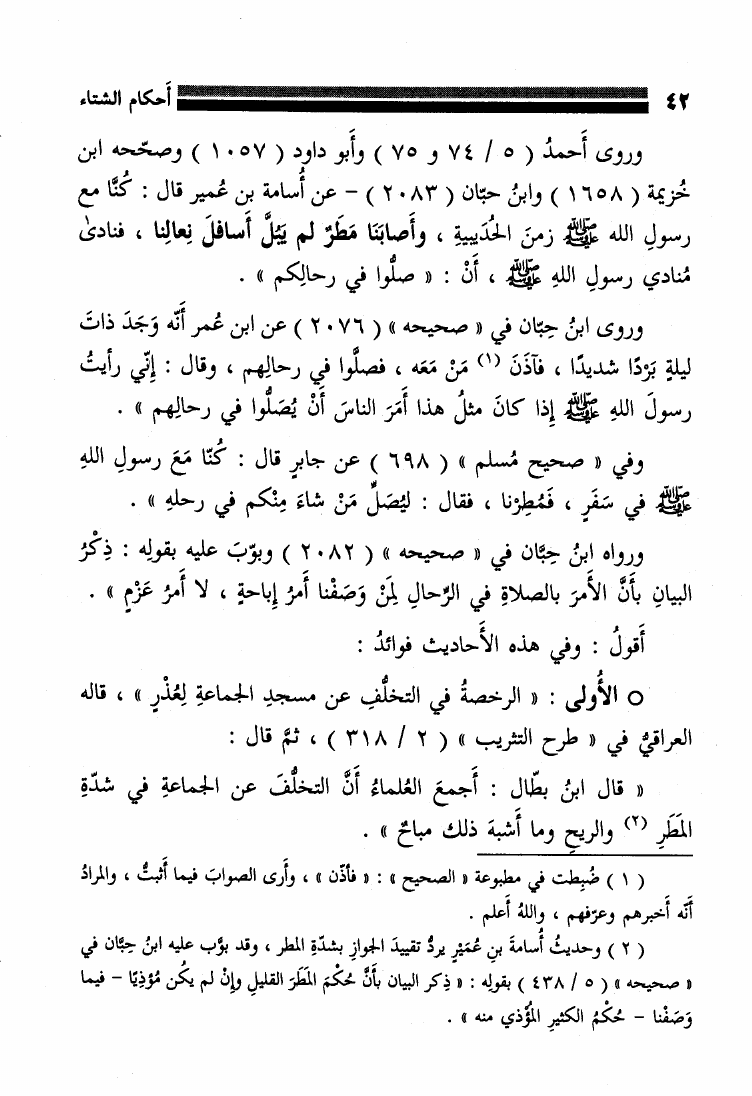 ٤٢ أَحكام الشتاء
وروى أَحمدُ ( ٥ / ٧٤ و ٧٥ ) وأَبو داود ( ١٠٥٧ ) وصحّحه ابن
خُزيمة ( ١٦٥٨ ) وابنُ حبّان ( ٢٠٨٣ ) – عن أُسامة بن عُمير قال : كُنَّا مع
رسولِ الله ﷺ زمنَ الحُدَيبيةِ ، وأَصابَنَا مَطَرٌ لم يَبُلَّ أَسافلَ نِعالِنا ، فنادىٰ
مُنادي رسولِ اللهِ ﷺ ، أَنْ : « صلُّوا في رحالِكم » .
وروى ابنُ حِبّان في « صحيحه » ( ٢٠٧٦ ) عن ابن عُمر أَنّه وَجَدَ ذاتَ
ليلةٍ بَرْدًا شديدًا ، فآذَنَ (١) مَنْ مَعَه ، فصلَّوا في رحالِهم ، وقال : إِنّي رأَيتُ
رسولَ اللهِ ﷺ إِذا كانَ مثلُ هذا أَمَرَ الناسَ أَنْ يُصَلُّوا في رحالِهم » .
وفي « صحيح مُسلم » ( ٦٩٨ ) عن جابرٍ قال : كُنّا مَعَ رسولِ اللهِ
ﷺ في سَفَرٍ ، فَمُطِرْنا ، فقال : ليُصَلِّ مَنْ شاءَ مِنْكم في رحلهِ » .
ورواه ابنُ حِبَّان في « صحيحه » ( ٢٠٨٢ ) وبوّبَ عليه بقولِه : ذِكْرُ
البيانِ بأَنَّ الأَمرَ بالصلاةِ في الرِّحالِ لِمَنْ وَصَفْنا أَمرُ إِباحةٍ ، لا أَمرُ عَزْمٍ » .
أَقولُ : وفي هذه الأَحاديث فوائدُ :
○ الأُولى : « الرخصةُ في التخلُّفِ عن مسجدِ الجماعةِ لِعُذْرٍ » ، قاله
العراقيُّ في « طرح التثريب » ( ٢ / ٣١٨ ) ، ثمَّ قال :
« قال ابنُ بطّال : أَجمعَ العُلماءُ أَنَّ التخلُّفَ عن الجماعةِ في شدّةِ
المَطَرِ (٢) والريحِ وما أَشبهَ ذلك مباحٌ » .
( ١ ) ضُبِطت في مطبوعة « الصحيح » : « فأَذّن » ، وأَرى الصوابَ فيما أَثبتُّ ، والمرادُ
أَنّه أَخبرهم وعرّفهم ، واللهُ أَعلم .
( ٢ ) وحديثُ أُسامةَ بنِ عُمَيْرٍ يردُّ تقييدَ الجوازِ بشدّةِ المطر ، وقد بوَّب عليه ابنُ حِبَّان في
« صحيحه » ( ٥ / ٤٣٨ ) بقولِه : « ذِكر البيان بأَنَّ حُكْمَ المَطَرِ القليلِ وإِنْ لم يكُن مُؤْذِيًا – فيما
وَصَفْنا – حُكْمُ الكثيرِ المُؤْذي منه » .